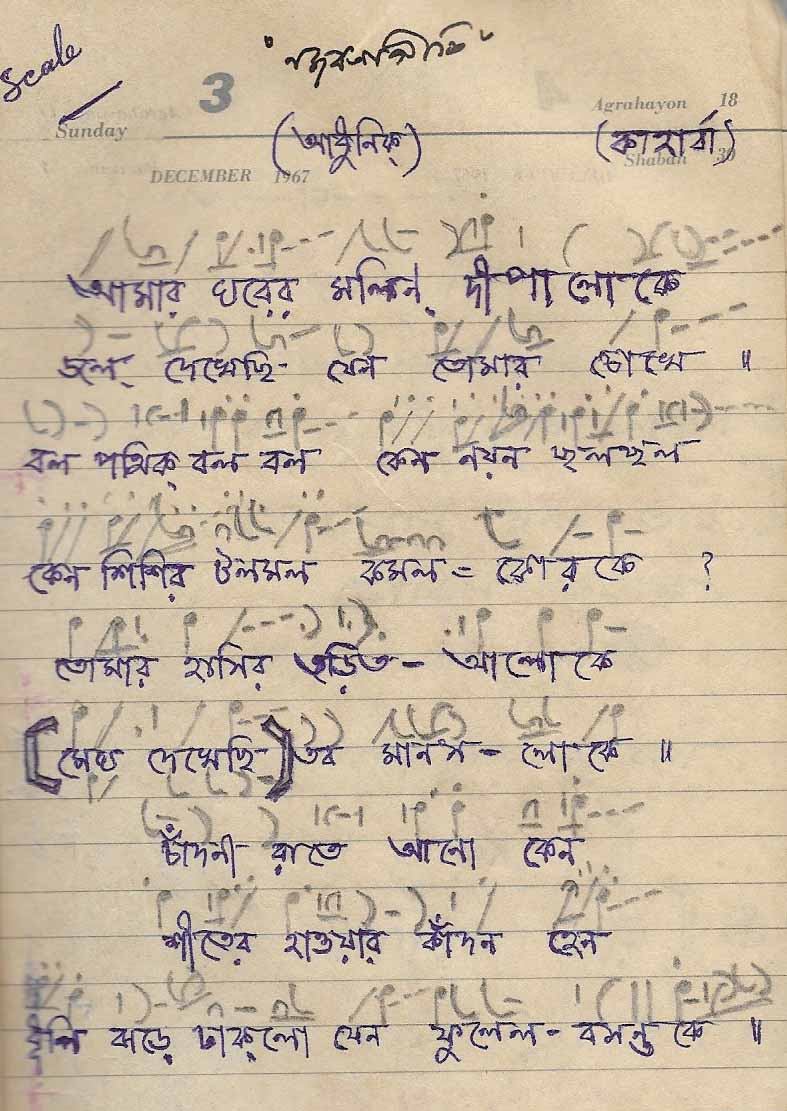 Scale
"নজরুলগীতি"
3
Agrahayon 18
Sunday
(আধুনিক্) (কাহার্বা)
Shaban 30
DECEMBER 1967
আমার ঘরের মলিন্ দীপালোকে
জল্ দেখেছি- যেন তোমার চোখে ॥
বল পথিক্ বল বল কেন নয়ন ছলছল
কেন শিশির টলমল কমল = কোরকে ?
তোমার হাসির তড়িত - আলোকে
[মেঘ দেখেছি] তব মানস - লোকে ॥
চাঁদনী রাতে আনো কেন
শীতের হাওয়ার কাঁদন হেন
ধূলি ঝড়ে ঢাক্‌লো যেন ফুলেল - বসন্তকে ॥